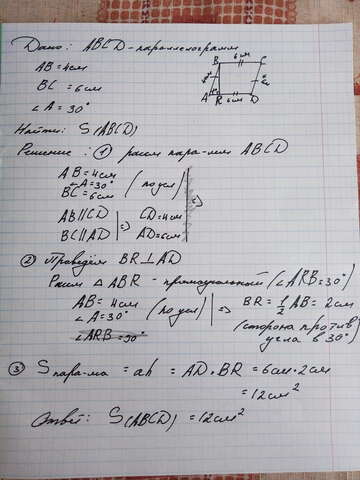 Дано: ABCD - параллелограмм
AB = 4см
BC = 6см
∠A = 30°
B 6см C
4см 4см
A R 6см D
Найти: S(ABCD)
Решение: ① рассм пара-мм ABCD
AB = 4см
∠A = 30° (по усл)
BC = 6см
AB∥CD | => CD = 4см
BC∥AD | AD = 6см
② Проведём BR⊥AD
Рассм △ ABR - прямоугольный (∠ARB = 30°)
AB = 4см (по усл) => BR = 1/2 AB = 2см
∠A = 30° (сторона против
∠ARB = 90° угла в 30°)
③ Sпара-ма = ah = AD · BR = 6см · 2см
= 12см²
Ответ: S(ABCD) = 12см²